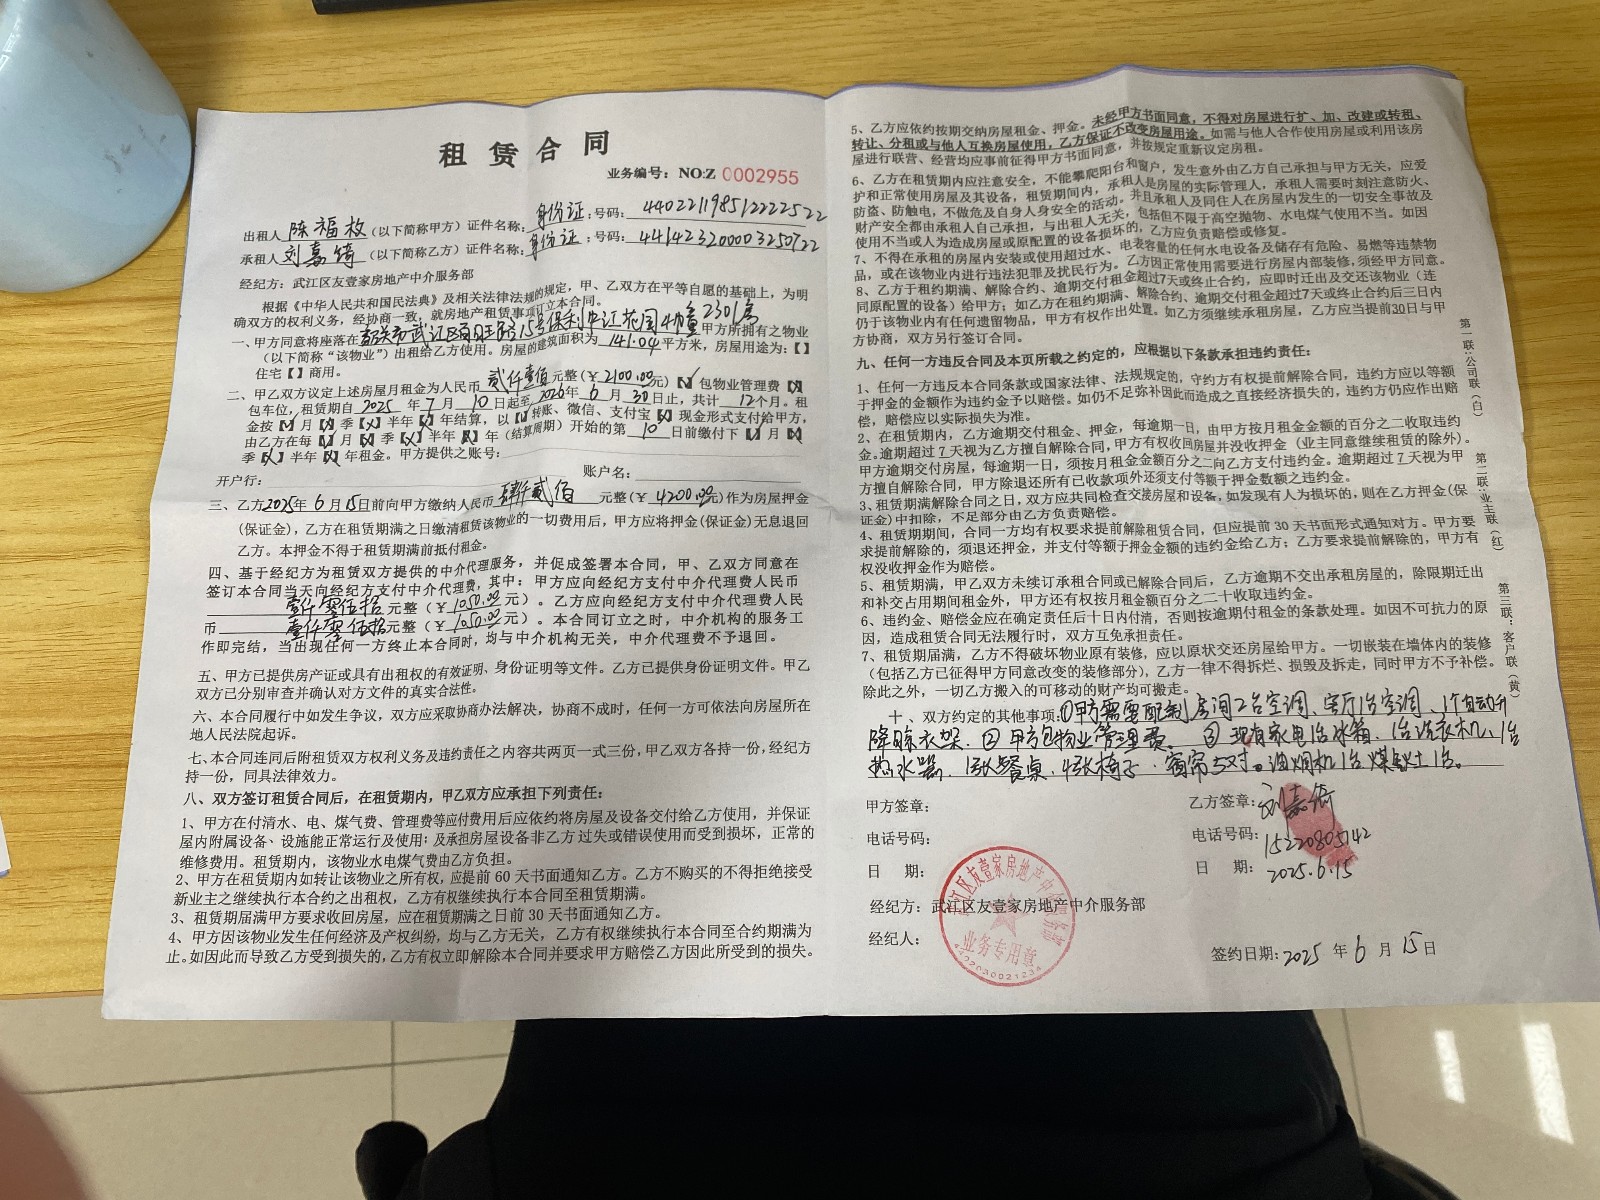 租赁合同
业务编号：NO:Z 0002955
出租人 陈福枚 (以下简称甲方) 证件名称: 身份证 ;号码: 440221198512222522
承租人 刘嘉锜 (以下简称乙方) 证件名称: 身份证 ;号码:
经纪方: 武江区友壹家房地产中介服务部
根据《中华人民共和国民法典》及相关法律法规的规定，甲、乙双方在平等自愿的基础上，为明
确双方的权利义务，经协商一致，就房地产租赁事项订立本合同。
一、甲方同意将座落在 韶关市武江区百旺路15号保利中江花园4幢2301房 甲方所拥有之物业
(以下简称“该物业”) 出租给乙方使用。房屋的建筑面积为 141.04 平方米，房屋用途为:【】
住宅【】商用。
二、甲乙双方议定上述房屋月租金为人民币 贰仟壹佰 元整(￥ 2100.00 元)【✓】包物业管理费【X】
包车位，租赁期自 2025 年 7 月 10 日起至 2026 年 6 月 30 日止，共计 12 个月。租
金按【✓】月【X】季【X】半年【X】年结算，以【✓】转账、微信、支付宝【X】现金形式支付给甲方，
由乙方在每【✓】月【X】季【X】半年【X】年 (结算周期) 开始的第 10 日前缴付下【✓】月【X】
季【X】半年【X】年租金。甲方提供之账号:
开户行: 账户名:
三、乙方2025年 6 月 15日前向甲方缴纳人民币 肆仟贰佰 元整 (￥ 4200.00元) 作为房屋押金
(保证金)，乙方在租赁期满之日缴清租赁该物业的一切费用后，甲方应将押金(保证金)无息退回
乙方。本押金不得于租赁期满前抵付租金。
四、基于经纪方为租赁双方提供的中介代理服务，并促成签署本合同，甲、乙双方同意在
签订本合同当天向经纪方支付中介代理费，其中: 甲方应向经纪方支付中介代理费人民币
壹仟零伍拾 元整 (￥ 1050.00 元) 。乙方应向经纪方支付中介代理费人民
币 壹仟零伍拾 元整 (￥ 1050.00 元) 。本合同订立之时，中介机构的服务工
作即完结，当出现任何一方终止本合同时，均与中介机构无关，中介代理费不予退回。
五、甲方已提供房产证或具有出租权的有效证明、身份证明等文件。乙方已提供身份证明文件。甲乙
双方已分别审查并确认对方文件的真实合法性。
六、本合同履行中如发生争议，双方应采取协商办法解决，协商不成时，任何一方可依法向房屋所在
地人民法院起诉。
七、本合同连同后附租赁双方权利义务及违约责任之内容共两页一式三份，甲乙双方各持一份，经纪方
持一份，同具法律效力。
八、双方签订租赁合同后，在租赁期内，甲乙双方应承担下列责任:
1、甲方在付清水、电、煤气费、管理费等应付费用后应依约将房屋及设备交付给乙方使用，并保证
屋内附属设备、设施能正常运行及使用; 及承担房屋设备非乙方过失或错误使用而受到损坏，正常的
维修费用。租赁期内，该物业水电煤气费由乙方负担。
2、甲方在租赁期内如转让该物业之所有权，应提前 60 天书面通知乙方。乙方不购买的不得拒绝接受
新业主之继续执行本合约之出租权，乙方有权继续执行本合同至租赁期满。
3、租赁期届满甲方要求收回房屋，应在租赁期满之日前 30 天书面通知乙方。
4、甲方因该物业发生任何经济及产权纠纷，均与乙方无关，乙方有权继续执行本合同至合约期满为
止。如因此而导致乙方受到损失的，乙方有权立即解除本合同并要求甲方赔偿乙方因此所受到的损失。
5、乙方应依约按期交纳房屋租金、押金。未经甲方书面同意，不得对房屋进行扩、加、改建或转租、
转让、分租或与他人互换房屋使用，乙方保证不改变房屋用途。如需与他人合作使用房屋或利用该房
屋进行联营、经营均应事前征得甲方书面同意，并按规定重新议定房租。
6、乙方在租赁期内应注意安全，不能攀爬阳台和窗户，发生意外由乙方自己承担与甲方无关，应爱
护和正常使用房屋及其设备，租赁期间内，承租人是房屋的实际管理人，承租人需要时刻注意防火、
防盗、防触电，不做危及自身人身安全的活动。并且承租人及同住人在房屋内发生的一切安全事故及
财产安全都由承租人自己承担，与出租人无关，包括但不限于高空抛物、水电煤气使用不当。如因
使用不当或人为造成房屋或原配置的设备损坏的，乙方应负责赔偿或修复。
7、不得在承租的房屋内安装或使用超过水、电表容量的任何水电设备及储存有危险、易燃等违禁物
品，或在该物业内进行违法犯罪及扰民行为。乙方因正常使用需要进行房屋内部装修，须经甲方同意。
8、乙方于租约期满、解除合约、逾期交付租金超过7天或终止合约，应即时迁出及交还该物业 (连
同原配置的设备) 给甲方; 如乙方在租约期满、解除合约、逾期交付租金超过7天或终止合约后三日内
仍于该物业内有任何遗留物品，甲方有权作出处置。如乙方须继续承租房屋，乙方应当提前30日与甲
方协商，双方另行签订合同。
九、任何一方违反合同及本页所载之约定的，应根据以下条款承担违约责任:
1、任何一方违反本合同条款或国家法律、法规规定的，守约方有权提前解除合同，违约方应以等额
于押金的金额作为违约金予以赔偿。如仍不足弥补因此而造成之直接经济损失的，违约方仍应作出赔
偿，赔偿应以实际损失为准。
2、在租赁期内，乙方逾期交付租金、押金，每逾期一日，由甲方按月租金金额的百分之二收取违约
金。逾期超过 7 天视为乙方擅自解除合同，甲方有权收回房屋并没收押金 (业主同意继续租赁的除外)。
甲方逾期交付房屋，每逾期一日，须按月租金金额百分之二向乙方支付违约金。逾期超过 7 天视为甲
方擅自解除合同，甲方除退还所有已收款项外还须支付等额于押金数额之违约金。
3、租赁期满解除合同之日，双方应共同检查交接房屋和设备，如发现有人为损坏的，则在乙方押金(保
证金)中扣除，不足部分由乙方负责赔偿。
4、租赁期期间，合同一方均有权要求提前解除租赁合同，但应提前 30 天书面形式通知对方。甲方要
求提前解除的，须退还押金，并支付等额于押金金额的违约金给乙方; 乙方要求提前解除的，甲方有
权没收押金作为赔偿。
5、租赁期满，甲乙双方未续订承租合同或已解除合同后，乙方逾期不交出承租房屋的，除限期迁出
和补交占用期间租金外，甲方还有权按月租金额百分之二十收取违约金。
6、违约金、赔偿金应在确定责任后十日内付清，否则按逾期付租金的条款处理。如因不可抗力的原
因，造成租赁合同无法履行时，双方互免承担责任。
7、租赁期届满，乙方不得破坏物业原有装修，应以原状交还房屋给甲方。一切嵌装在墙体内的装修
(包括乙方已征得甲方同意改变的装修部分)，乙方一律不得拆烂、损毁及拆走，同时甲方不予补偿。
除此之外，一切乙方搬入的可移动的财产均可搬走。
十、双方约定的其他事项: ①甲方需要配制房间2台空调、客厅1台空调、1个自动升
降晾衣架. ②甲方包物业管理费. ③现有家电1台冰箱. 1台洗衣机、1台
热水器、1张餐桌、4张椅子、窗帘5对。油烟机1台煤气灶1台。
甲方签章: 乙方签章: 刘嘉锜
电话号码: 电话号码: 15220805142
日 期: 日 期: 2025.6.15
经纪方: 武江区友壹家房地产中介服务部
经纪人:
签约日期: 2025 年 6 月 15 日
武江区友壹家房地产中介服务部
业务专用章
4422030021234
第一联:公司联(白)
第二联:业主联(红)
第三联:客户联(黄)